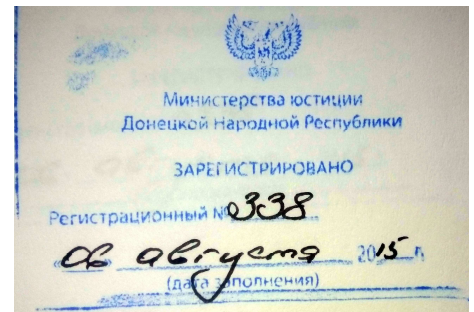 Министерства юстиции
Донецкой Народной Республики
ЗАРЕГИСТРИРОВАНО
Регистрационный № 338
«06» августа 2015 г.
(дата заполнения)